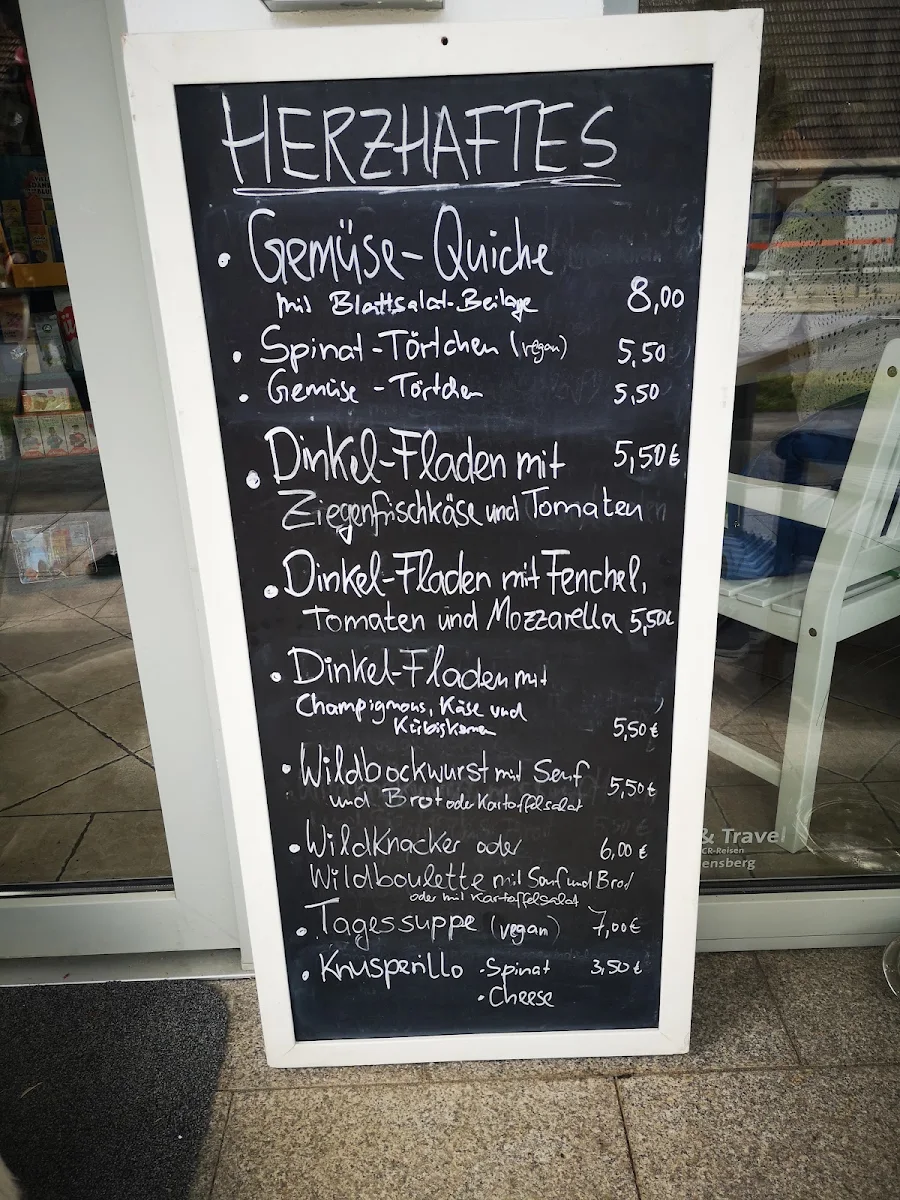 HERZHAFTES
• Gemüse-Quiche
mit Blattsalat-Beilage 8,00
• Spinat-Törtchen (vegan) 5,50
• Gemüse-Törtchen 5,50
• Dinkel-Fladen mit 5,50€
Ziegenfrischkäse und Tomaten
• Dinkel-Fladen mit Fenchel,
Tomaten und Mozzarella 5,50€
• Dinkel-Fladen mit
Champignons, Käse und
Kürbiskernen 5,50€
• Wildbockwurst mit Senf
und Brot oder Kartoffelsalat 5,50€
• Wildknacker oder 6,00€
Wildboulette mit Senf und Brot
oder mit Kartoffelsalat
• Tagessuppe (vegan) 7,00€
• Knusperillo • Spinat 3,50€
• Cheese
& Travel
CR-Reisen
ensberg